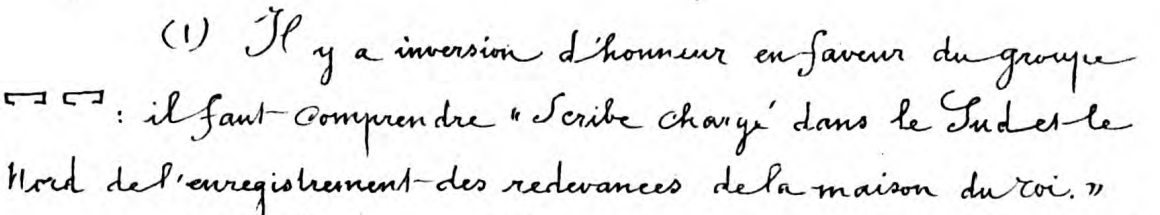 (1) Il y a inversion d'honneur en faveur du groupe
𓉐 𓉐 : il faut comprendre « Scribe chargé dans le Sud et le
Nord de l'enregistrement des redevances de la maison du roi. »